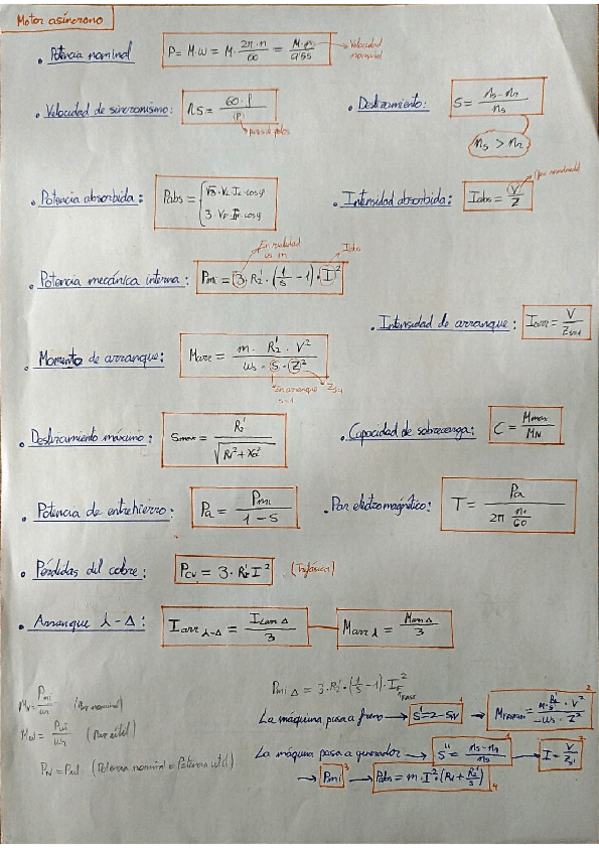 Motor asíncrono
• Potencia nominal P = M·ω = M · 2π·n / 60 = M·n / 9'55 → Velocidad nominal
• Velocidad de sincronismo: ns = 60·f / (P) → pares de polos
• Deslizamiento: S = ns - n2 / ns
ns > n2
• Potencia absorbida: Pabs = { √3·VL·IL·cosφ
3·VF·IF·cosφ
• Intensidad absorbida: Iabs = V / Z
En realidad es m
Iabs
• Potencia mecánica interna: Pmi = 3·R2'·(1/S - 1)·I²
• Intensidad de arranque: Iarr = V / Zs=1
• Momento de arranque: Marr = m · R2' · V² / ωs · S · Z²
En arranque s=1
Zs=1
• Deslizamiento máximo: Smax =
• Capacidad de sobrecarga: C = Mmax / MN
• Potencia de entrehierro: Pa = Pmi / 1 - S
• Par electromagnético: T = Pa / 2π n1/60
• Pérdidas del cobre: PCU = 3· I² (Trifásico)
• Arranque λ-Δ: Iarr λ-Δ = Iarr Δ / 3 Marr λ = Marr Δ / 3
Pmi Δ = 3·R2'·(1/S - 1)·I²F
FASE
(Par nominal)
(Par útil)
PN = Put (Potencia nominal = Potencia útil)
La máquina pasa a freno → S' = 2 - SN →
La máquina pasa a generador → S'' = ns - n2 / ns → I = V
→ Pmi → Pabs = m·I²·(R1 + R2'/S)